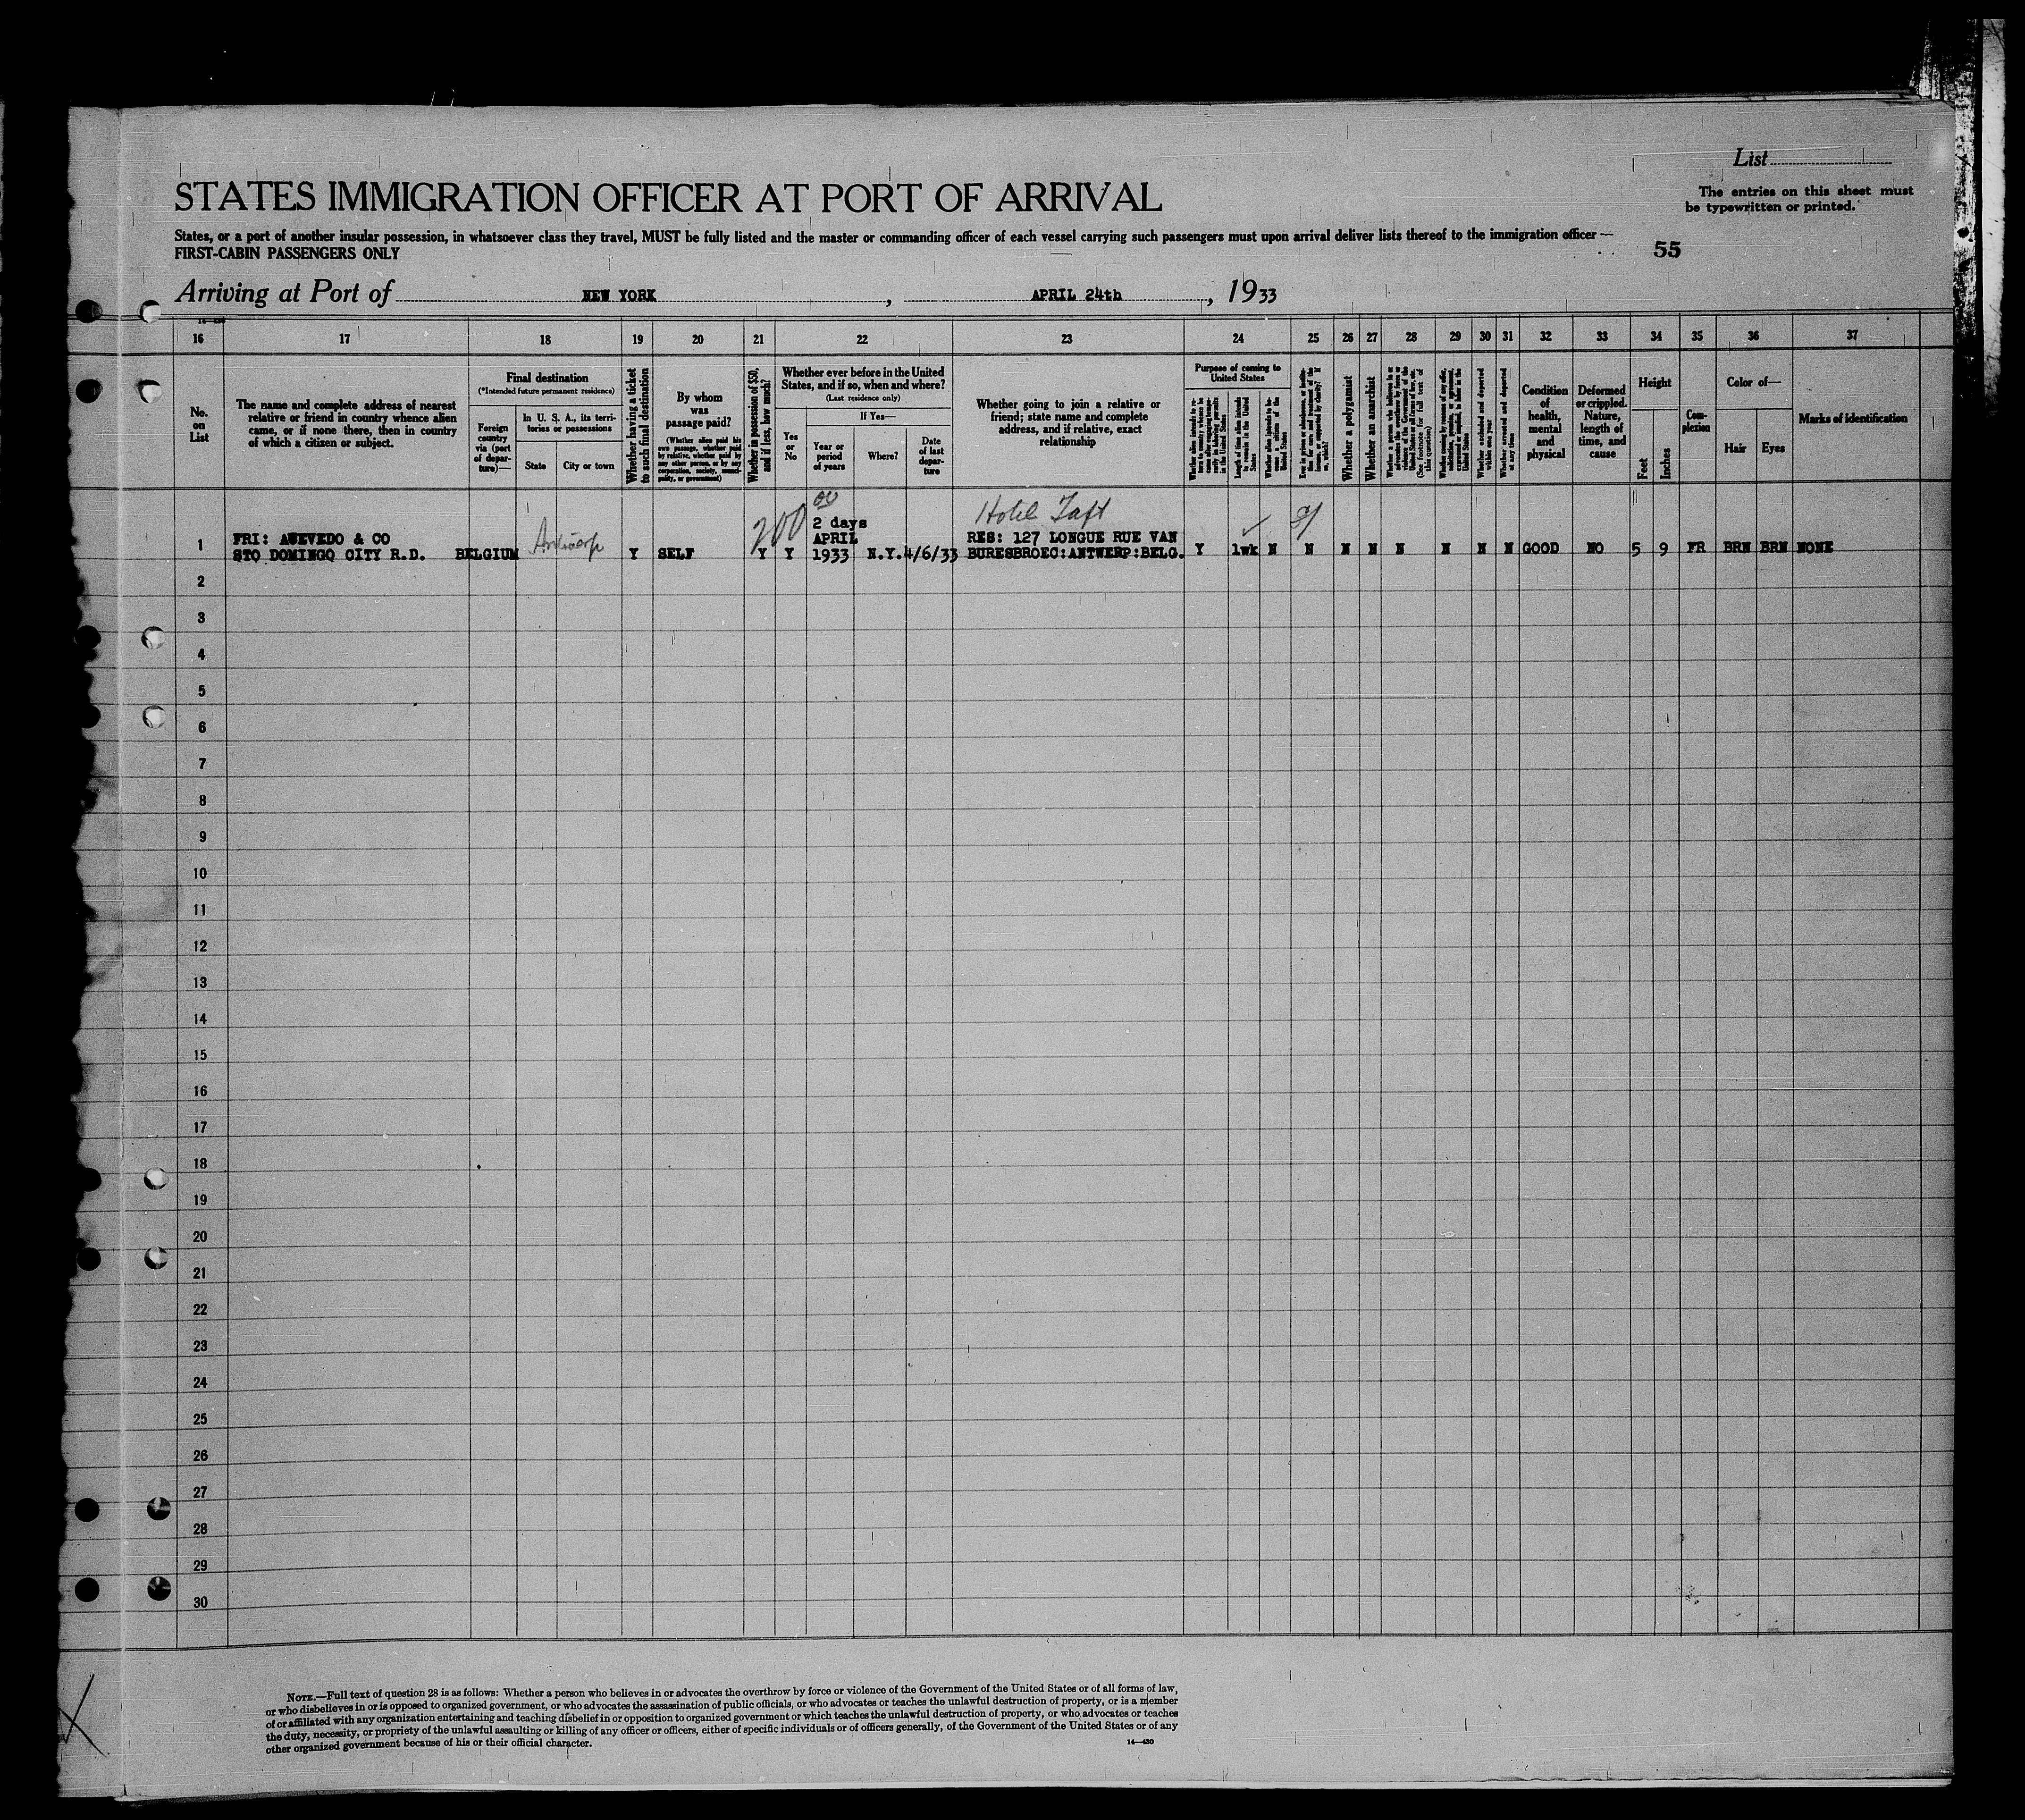 List
STATES IMMIGRATION OFFICER AT PORT OF ARRIVAL
The entries on this sheet must
be typewritten or printed.
States, or a port of another insular possession, in whatsoever class they travel, MUST be fully listed and the master or commanding officer of each vessel carrying such passengers must upon arrival deliver lists thereof to the immigration officer —
FIRST-CABIN PASSENGERS ONLY
55
Arriving at Port of NEW YORK, APRIL 24th, 1933
16 17 18 19 20 21 22 23 24 25 26 27 28 29 30 31 32 33 34 35 36 37
No.
on
List
The name and complete address of nearest
relative or friend in country whence alien
came, or if none there, then in country
of which a citizen or subject.
Final destination
(*Intended future permanent residence)
Foreign
country
via (port
of depar-
ture)—
In U. S. A., its terri-
tories or possessions
State
City or town
Whether having a ticket
to such final destination
By whom
was
passage paid?
(Whether alien paid his
own passage, whether paid
by relative, whether paid by
any other person, or by any
corporation, society, munici-
pality, or government)
Whether in possession of $50,
and if less, how much?
Whether ever before in the United
States, and if so, when and where?
(Last residence only)
Yes
or
No
If Yes—
Year or
period
of years
Where?
Date
of last
depar-
ture
Whether going to join a relative or
friend; state name and complete
address, and if relative, exact
relationship
Purpose of coming to
United States
Length of time alien intends
to remain in the United
States
Whether alien intends to be-
come a citizen of the
United States
Whether a polygamist
Whether an anarchist
(See footnote for full text of
this question)
Whether excluded and deported
within one year
Whether arrested and deported
at any time
Condition
of
health,
mental
and
physical
Deformed
or crippled.
Nature,
length of
time, and
cause
Height
Feet
Inches
Com-
plexion
Color of—
Hair
Eyes
Marks of identification
200 00
2 days
Hotel Taft
1 FRI: AUEVEDO & CO Antwerp APRIL RES: 127 LONGUE RUE VAN
STO DOMINGO CITY R.D. BELGIUM Y SELF Y Y 1933 N.Y. 4/6/33 BURESBROEC:ANTWERP:BELG. Y 1wk N N N N N N N N GOOD NO 5 9 FR BRN BRN NONE
2
3
4
5
6
7
8
9
10
11
12
13
14
15
16
17
18
19
20
21
22
23
24
25
26
27
28
29
30
NOTE.—Full text of question 28 is as follows: Whether a person who believes in or advocates the overthrow by force or violence of the Government of the United States or of all forms of law,
or who disbelieves in or is opposed to organized government, or who advocates the assassination of public officials, or who advocates or teaches the unlawful destruction of property, or is a member
of or affiliated with any organization entertaining and teaching disbelief in or opposition to organized government or which teaches the unlawful destruction of property, or who advocates or teaches
the duty, necessity, or propriety of the unlawful assaulting or killing of any officer or officers, either of specific individuals or of officers generally, of the Government of the United States or of any
other organized government because of his or their official character.
14—430